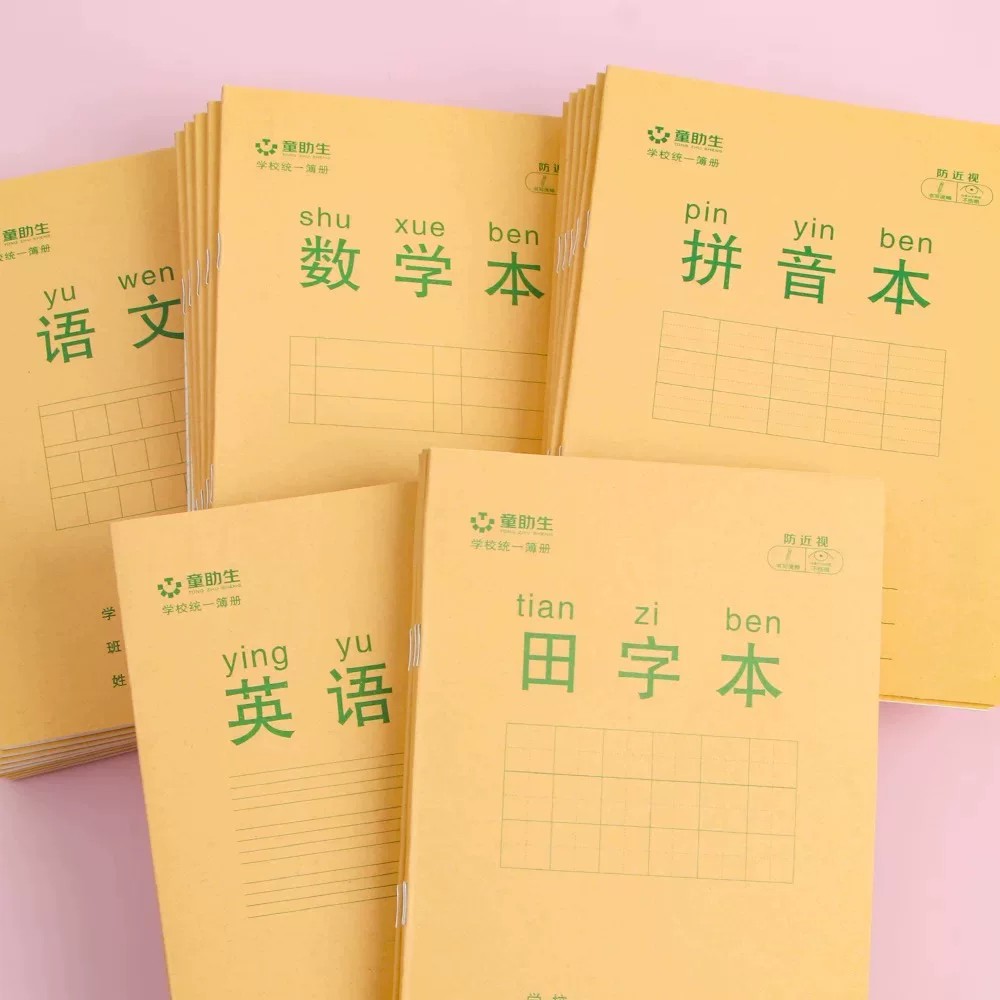 童助生
学校统一簿册
yu wen
语文
学
班
姓
童助生
学校统一簿册
防近
shu xue ben
数学本
童助生
学校统一簿册
防近视
pin yin ben
拼音本
童助生
TONG ZHU SHENG
学校统一簿册
ying yu
英语
童助生
TONG ZHU SHENG
学校统一簿册
防近视
tian zi ben
田字本
学校